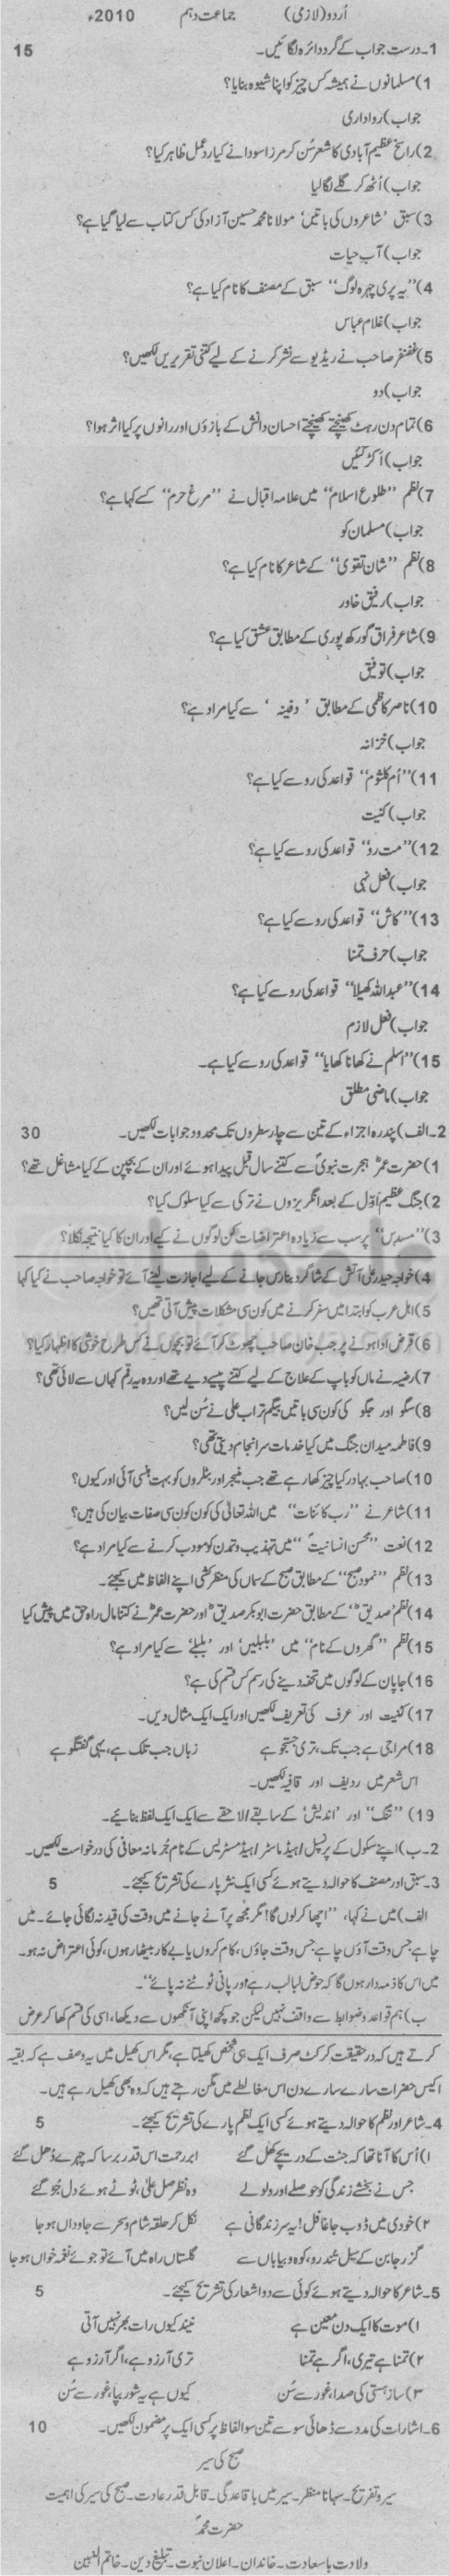 اُردو(لازمی) جماعت دہم 2010ء
1۔درست جواب کے گرد دائرہ لگائیں۔ 15
1)مسلمانوں نے ہمیشہ کس چیز کو اپنا شیوہ بنایا؟
جواب)رواداری
2)راسخ عظیم آبادی کا شعر سُن کر مرزا سودا نے کیا ردِ عمل ظاہر کیا؟
جواب)اُٹھ کر گلے لگا لیا
3)سبق 'شاعروں کی باتیں' مولانا محمد حسین آزاد کی کس کتاب سے لیا گیا ہے؟
جواب)آبِ حیات
4)"یہ پری چہرہ لوگ" سبق کے مصنف کا نام کیا ہے؟
جواب)غلام عباس
5)غضنفر صاحب نے ریڈیو سے نشر کرنے کے لیے کتنی تقریریں لکھیں؟
جواب)دو
6)تمام دن رہٹ کھینچتے کھینچتے احسان دانش کے بازوؤں اور رانوں پر کیا اثر ہوا؟
جواب)اکڑ گئیں
7)نظم "طلوعِ اسلام" میں علامہ اقبال نے "مرغِ حرم" کسے کہا ہے؟
جواب)مسلمان کو
8)نظم "شانِ تقویٰ" کے شاعر کا نام کیا ہے؟
جواب)رفیق خاور
9)شاعر فراق گورکھ پوری کے مطابق عشق کیا ہے؟
جواب)توفیق
10)ناصر کاظمی کے مطابق 'دفینہ' سے کیا مراد ہے؟
جواب)خزانہ
11)"اُم کلثوم" قواعد کی رو سے کیا ہے؟
جواب)کنیت
12)"مت رو" قواعد کی رو سے کیا ہے؟
جواب)فعل نہی
13)"کاش" قواعد کی رو سے کیا ہے؟
جواب)حرف تمنا
14)"عبداللہ کھیلا" قواعد کی رو سے کیا ہے؟
جواب)فعل لازم
15)"اسلم نے کھانا کھایا" قواعد کی رو سے کیا ہے۔
جواب)ماضی مطلق
2۔الف)پندرہ اجزاء کے تین سے چار سطروں تک محدود جوابات لکھیں۔ 30
1)حضرت عمرؓ ہجرت نبویؐ سے کتنے سال قبل پیدا ہوئے اور ان کے بچپن کے کیا مشاغل تھے؟
2)جنگ عظیم اوّل کے بعد انگریزوں نے ترکی سے کیا سلوک کیا؟
3)"مسدس" پر سب سے زیادہ اعتراضات کن لوگوں نے کیے اور ان کا کیا نتیجہ نکلا؟
4)خواجہ حیدر علی آتش کے شاگرد بنارس جانے کے لیے اجازت لینے آئے تو خواجہ صاحب نے کیا کہا
5)اہل عرب کو ابتدا میں سفر کرنے میں کون سی مشکلات پیش آتی تھیں؟
6)قرض ادا ہونے پر جب خان صاحب چھوٹ کر آئے تو بچوں نے کس طرح خوشی کا اظہار کیا؟
7)رضیہ نے ماں کو باپ کے علاج کے لیے کتنے پیسے دیے تھے اور وہ یہ رقم کہاں سے لائی تھی؟
8)سگو اور جگو کی کون سی باتیں بیگم تراب علی نے سُن لیں؟
9)فاطمہ میدان جنگ میں کیا خدمات سرانجام دیتی تھی؟
10)صاحب بہادر کیا چیز کھا رہے تھے جب منیجر اور بٹلروں کو بہت ہنسی آئی اور کیوں؟
11)شاعر نے "ربِ کائنات" میں اللہ تعالیٰ کی کون کون سی صفات بیان کی ہیں؟
12)نعت "محسنِ انسانیتؐ" میں تہذیب و تمدن کو مودب کرنے سے کیا مراد ہے؟
13)نظم "نمودِ صبح" کے مطابق صبح کے سماں کی منظر کشی اپنے الفاظ میں کیجئے۔
14)نظم صدیقؓ کے مطابق حضرت ابوبکر صدیقؓ اور حضرت عمرؓ نے کتنا مال راہ حق میں پیش کیا
15)نظم "گھروں کے نام" میں 'بلبلیں' اور 'بلبلے' سے کیا مراد ہے؟
16)جاپان کے لوگوں میں تحفہ دینے کی رسم کس قسم کی ہے؟
17)کنیت اور عرف کی تعریف لکھیں اور ایک ایک مثال دیں۔
18)مراجی ہے جب تک، تری جستجو ہے زباں جب تلک ہے، یہی گفتگو ہے
اس شعر میں ردیف اور قافیہ لکھیں۔
19) "تنگ" اور 'اندیش' کے سابقے/لاحقے سے ایک ایک لفظ بنائیے۔
2۔ب)اپنے سکول کے پرنسپل/ہیڈ ماسٹر/ہیڈ مسٹریس کے نام جُرمانہ معافی کی درخواست لکھیں۔
3۔سبق اور مصنف کا حوالہ دیتے ہوئے کسی ایک نثر پارے کی تشریح کیجئے۔ 5
الف)میں نے کہا، "اچھا کر لوں گا! مگر مجھ پر آنے جانے میں وقت کی قید نہ لگائی جائے۔ میں
چاہے جس وقت آؤں چاہے جس وقت جاؤں، کام کروں یا بے کار بیٹھا رہوں، کوئی اعتراض نہ ہو۔
میں اس کا ذمہ دار ہوں گا کہ حوض لبالب رہے اور پانی ٹوٹنے نہ پائے"۔
ب)ہم قواعد و ضوابط سے واقف نہیں لیکن جو کچھ اپنی آنکھوں سے دیکھا، اسی کی قسم کھا کر عرض
کرتے ہیں کہ درحقیقت کرکٹ صرف ایک ہی شخص کھیلتا ہے، مگر اس کھیل میں یہ وصف ہے کہ بقیہ
اکیس حضرات سارے سارے دن اس مغالطے میں مگن رہتے ہیں کہ وہ بھی کھیل رہے ہیں۔
4۔شاعر اور نظم کا حوالہ دیتے ہوئے کسی ایک نظم پارے کی تشریح کیجئے۔ 5
۱)اُس کا آنا تھا کہ جنت کے دریچے کھل گئے ابرِ رحمت اس قدر برسا کہ چہرے دُھل گئے
جس نے بخشے زندگی کو حوصلے اور ولولے وہ نظر صلِ علیٰ، ٹوٹے ہوئے دل جُو گئے
۲)خودی میں ڈوب جا غافل! یہ سرِ زندگانی ہے نکل کر حلقہ شام و سحر سے جاوداں ہو جا
گزر جا بن کے سیل تند رو، کوہ و بیاباں سے گلستاں راہ میں آئے تو جوئے نغمہ خواں ہو جا
5۔شاعر کا حوالہ دیتے ہوئے کوئی سے دو اشعار کی تشریح کیجئے۔ 5
۱)موت کا ایک دن معین ہے نیند کیوں رات بھر نہیں آتی
۲)تمنا ہے تیری، اگر ہے تمنا تری آرزو ہے، اگر آرزو ہے
۳)سازِ ہستی کی صدا، غور سے سُن کیوں ہے یہ شور بپا، غور سے سُن
6۔اشارات کی مدد سے ڈھائی سو سے تین سو الفاظ پر کسی ایک پر مضمون لکھیں۔ 10
صبح کی سیر
سیر و تفریح۔ سہانا منظر۔ سیر میں باقاعدگی۔ قابل قدر عادت۔ صبح کی سیر کی اہمیت
حضرت محمدؐ
ولادت باسعادت۔ خاندان۔ اعلان نبوت۔ تبلیغ دین۔ خاتم النبیین